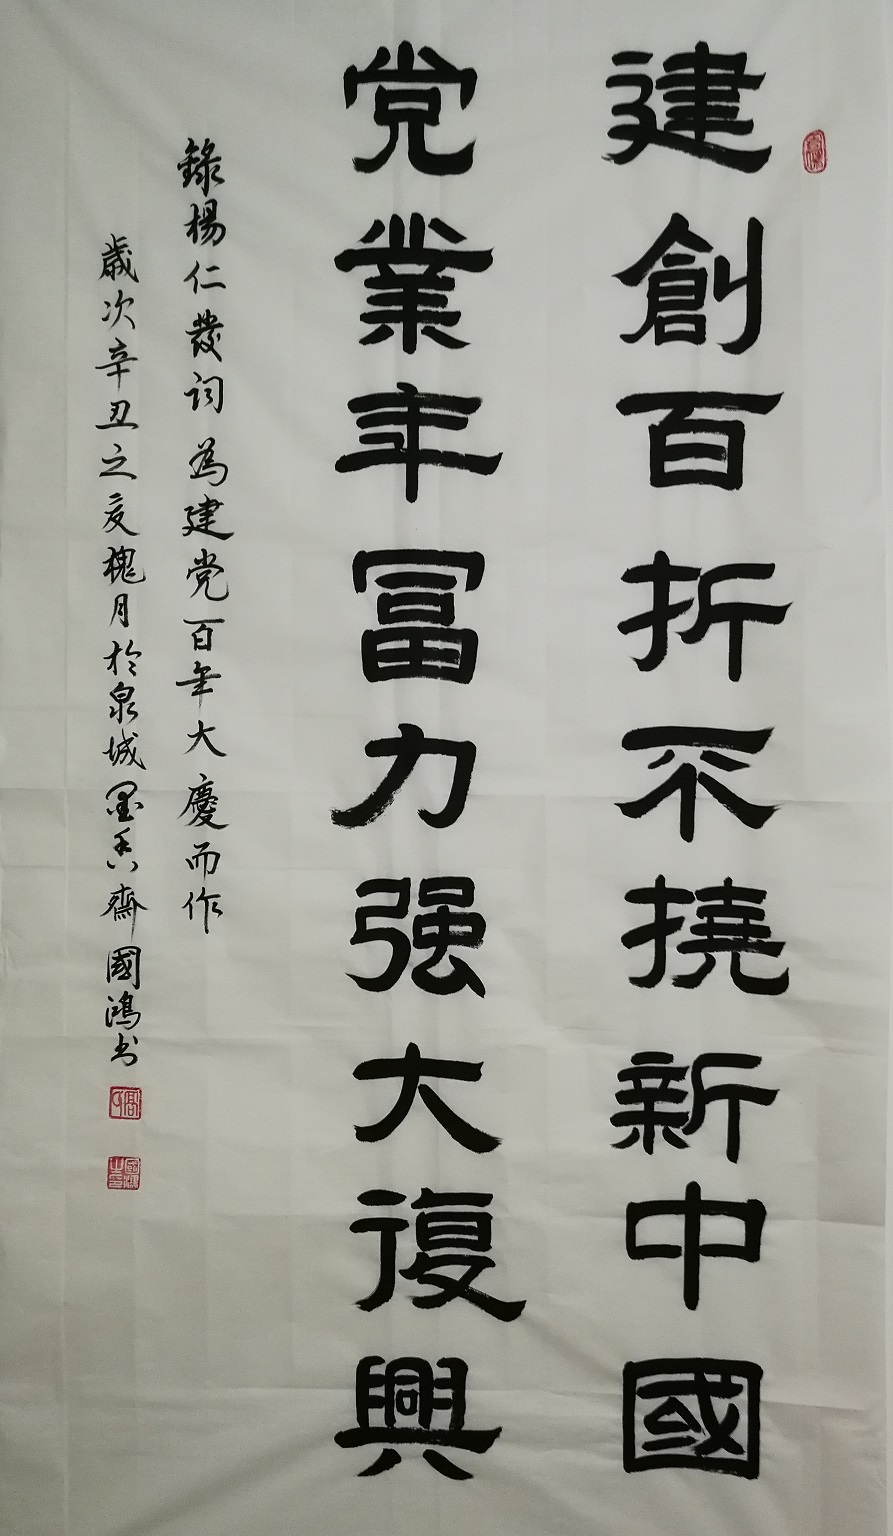 建創百折不撓新中國
党業年冨力强大復興
錄楊仁發詞為建党百年大慶而作
歲次辛丑之夏槐月於泉城墨香齋國鴻书